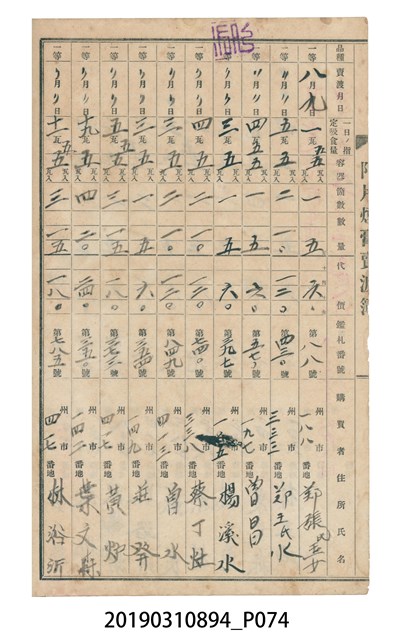 阿片煙膏賣渡簿
品種 賣渡月日 一日ノ指定吸食量 容器 箇數 數量 代價 鑑札番號 購買者住所氏名
一等 八月九日 一瓦五 五瓦入 一 五 六〇 第八八號 州市一八八番地 鄭張氏
一等 〃月〃日 五瓦 五瓦入 二 一〇 一二〇 第四三〇號 州市三三三番地 鄭王氏水
一等 〃月〃日 四瓦五 五瓦入 一 五 六〇 第五七〇號 州市九七番地 曾昌
一等 〃月〃日 三瓦 五瓦入 一 五 六〇 第三九七號 州市番地 楊溪水
一等 〃月〃日 四瓦 五瓦入 二 一〇 一二〇 第七四〇號 州市三三八番地 蔡丁
一等 〃月〃日 三瓦 五瓦入 二 一〇 一二〇 第八四九號 州市四一三番地 曾水
一等 〃月〃日 三瓦 五瓦入 一 五 六〇 第三五四號 州市一四九番地 莊
一等 〃月〃日 五瓦五 五瓦入 三 一五 一八〇 第號 州市四七番地 黃
一等 〃月〃日 十九瓦 五瓦入 四 二〇 二四〇 第三五〇號 州市一四二番地 葉文
一等 〃月〃日 十一瓦五 五瓦入 三 一五 一八〇 第七八五號 州市四七番地 林裕沂
20190310894_P074